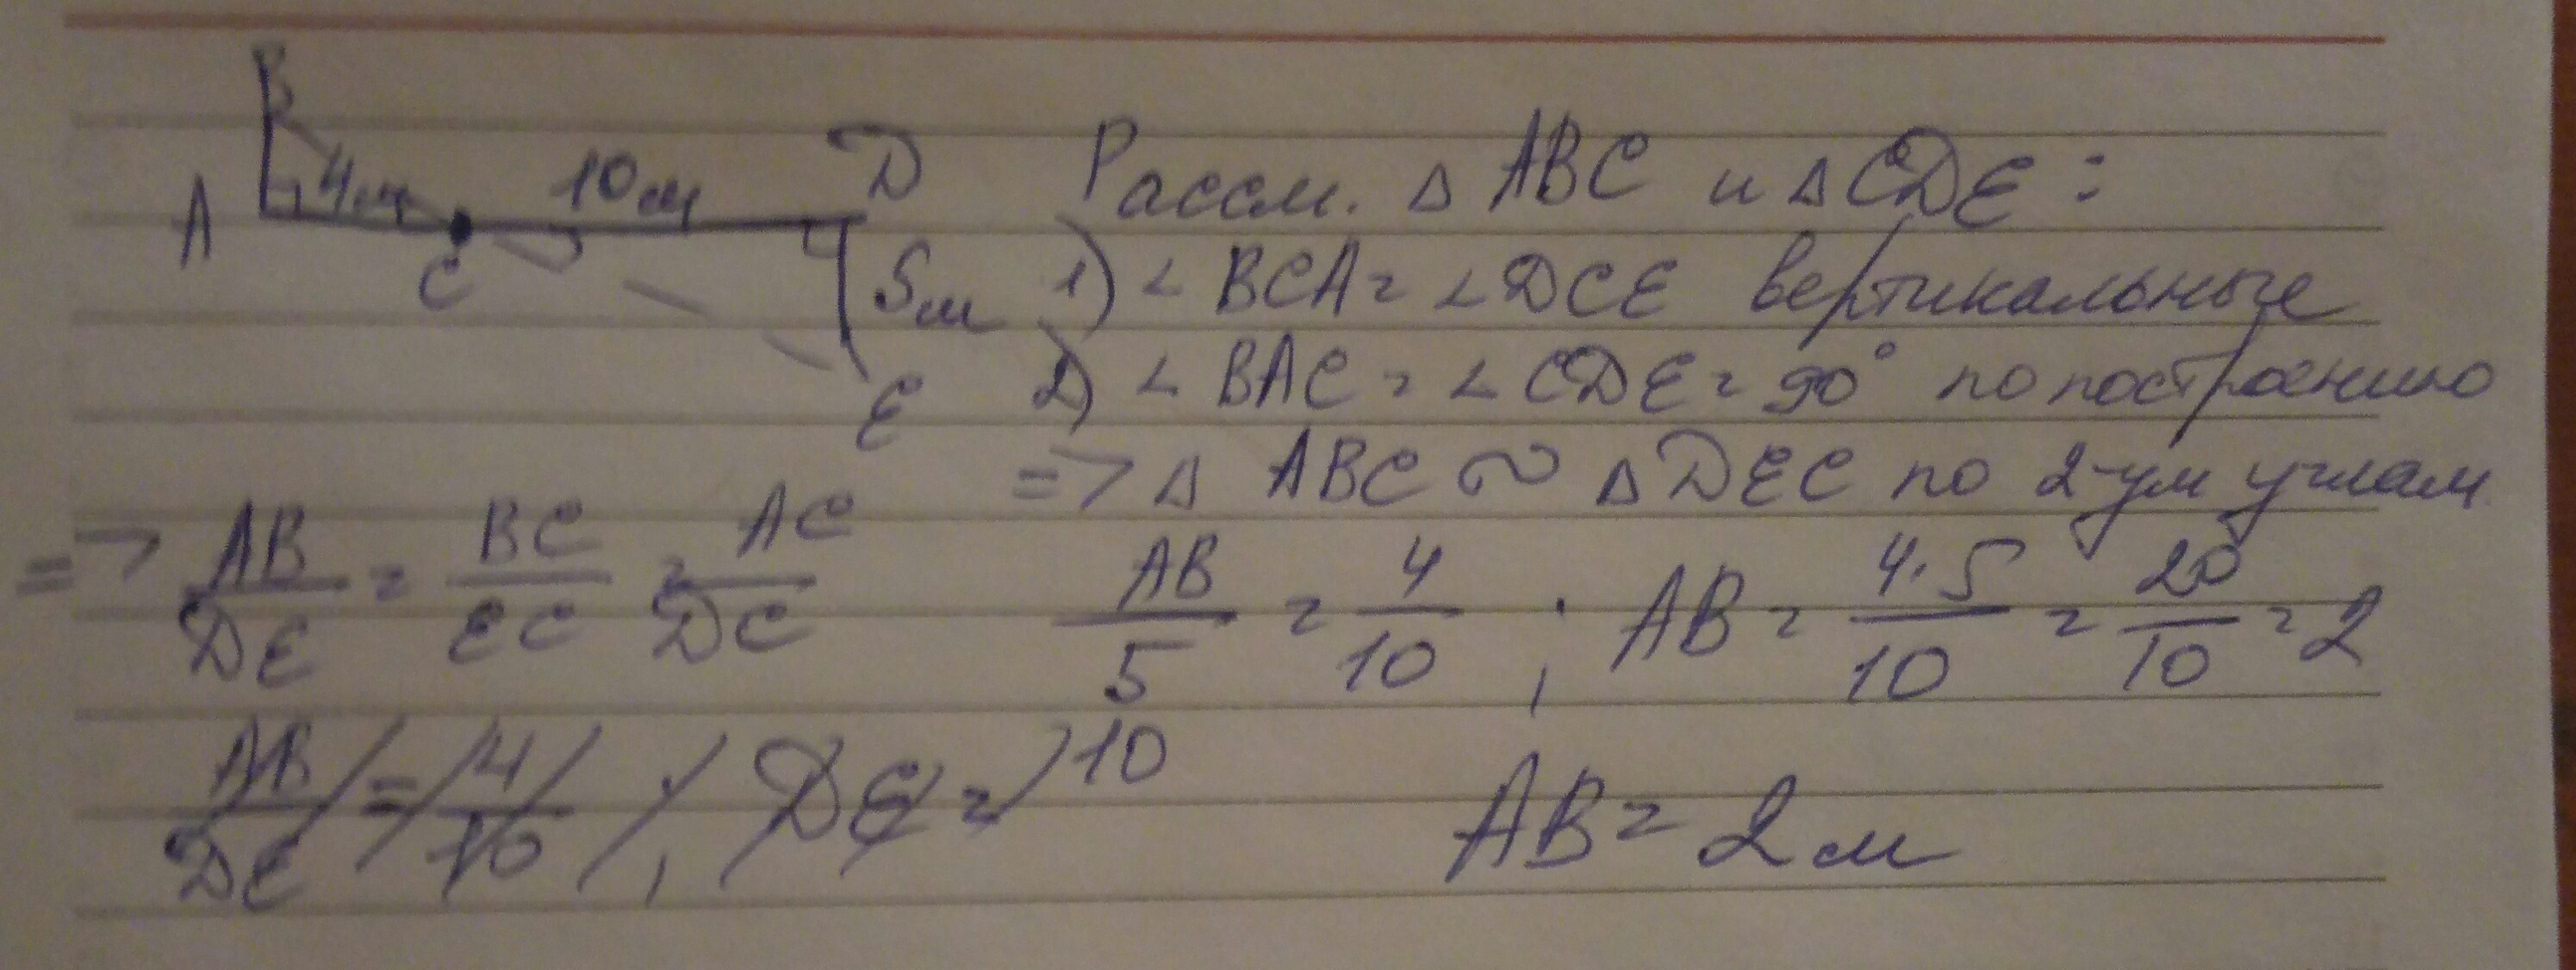 B
A 4м 10м D
C
5м
E
Рассм. △ ABC и △ CDE:
1) ∠ BCA = ∠ DCE вертикальные
2) ∠ BAC = ∠ CDE = 90° по построению
=> △ ABC ∾ △ DEC по 2-ум углам
=> AB/DE = BC/EC = AC/DC
AB/5 = 4/10 ; AB = 4·5/10 = 20/10 = 2
AB/DE = 4/10 ; DE = 10
AB = 2м